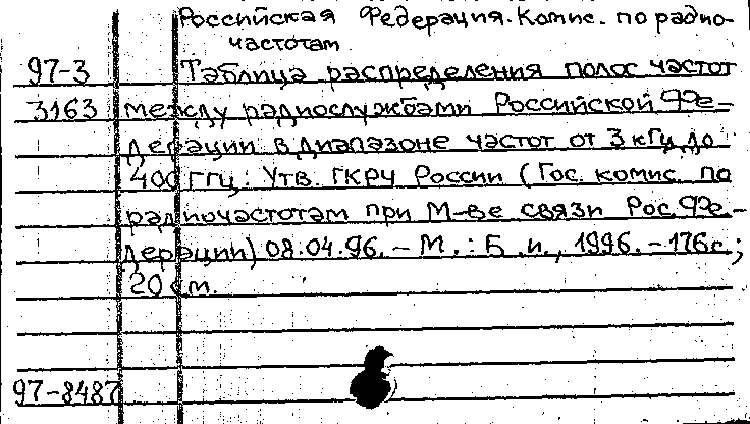 Российская Федерация. Комис. по радио-
частотам
97-3 Таблица распределения полос частот
3163 между радиослужбами Российской Фе-
дерации в диапазоне частот от 3 кГц до
400 ГГц: Утв. ГКРЧ России (Гос. комис. по
радиочастотам при М-ве связи Рос. Фе-
дерации) 08.04.96. - М.: Б. и., 1996. - 176 с.;
20 см.
97-8487